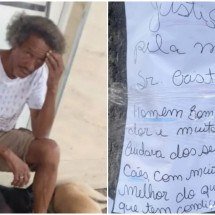 Justiça
pela m
Sr. Cast
Homem bom
dor e muito
Cuidava dos se
Cães com muit
melhor do qu
que tem condi